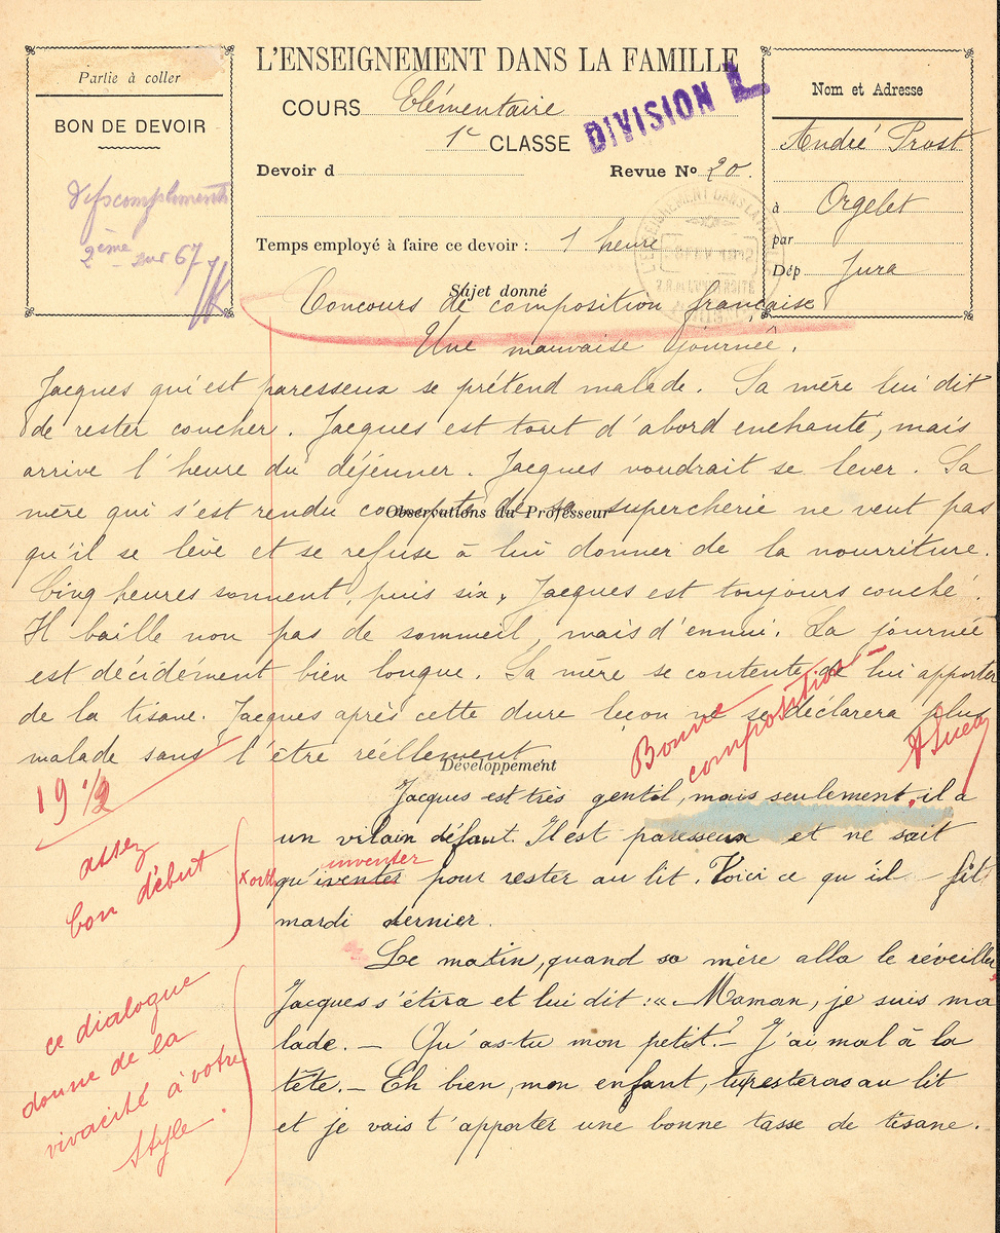 Partie à coller
BON DE DEVOIR
2ème sur 67
L'ENSEIGNEMENT DANS LA FAMILLE
COURS Elémentaire
1e CLASSE
DIVISION L
Devoir d
Revue No 20.
Temps employé à faire ce devoir : 1 heure
Nom et Adresse
André Prost
à Orgelet
par
Dép Jura
Sujet donné
Concours de composition française
Une mauvaise journée.
Jacques qui est paresseux se prétend malade. Sa mère lui dit
de rester coucher. Jacques est tout d'abord enchanté, mais
arrive l'heure du déjeuner. Jacques voudrait se lever. Sa
mère qui s'est rendu compte de sa supercherie ne veut pas
Observations du Professeur
qu'il se lève et se refuse à lui donner de la nourriture.
Cinq heures sonnent, puis six, Jacques est toujours couché.
Il baille non pas de sommeil, mais d'ennui. La journée
est décidément bien longue. Sa mère se contente de lui apporter
de la tisane. Jacques après cette dure leçon ne se déclarera plus
malade sans l'être réellement
Bonne
composition
19 1/2
Développement
Jacques est très gentil, mais seulement. il a
un vilain défaut. Il est paresseux et ne sait
inventer
qu'iventer pour rester au lit. Voici ce qu'il fit
x orth
mardi dernier.
assez
bon début
Le matin, quand sa mère alla le réveiller
Jacques s'étira et lui dit : « Maman, je suis ma
lade. — Qu'as-tu mon petit? — J'ai mal à la
tête. — Eh bien, mon enfant, tu resteras au lit
et je vais t'apporter une bonne tasse de tisane.
ce dialogue
donne de la
vivacité à votre
style.